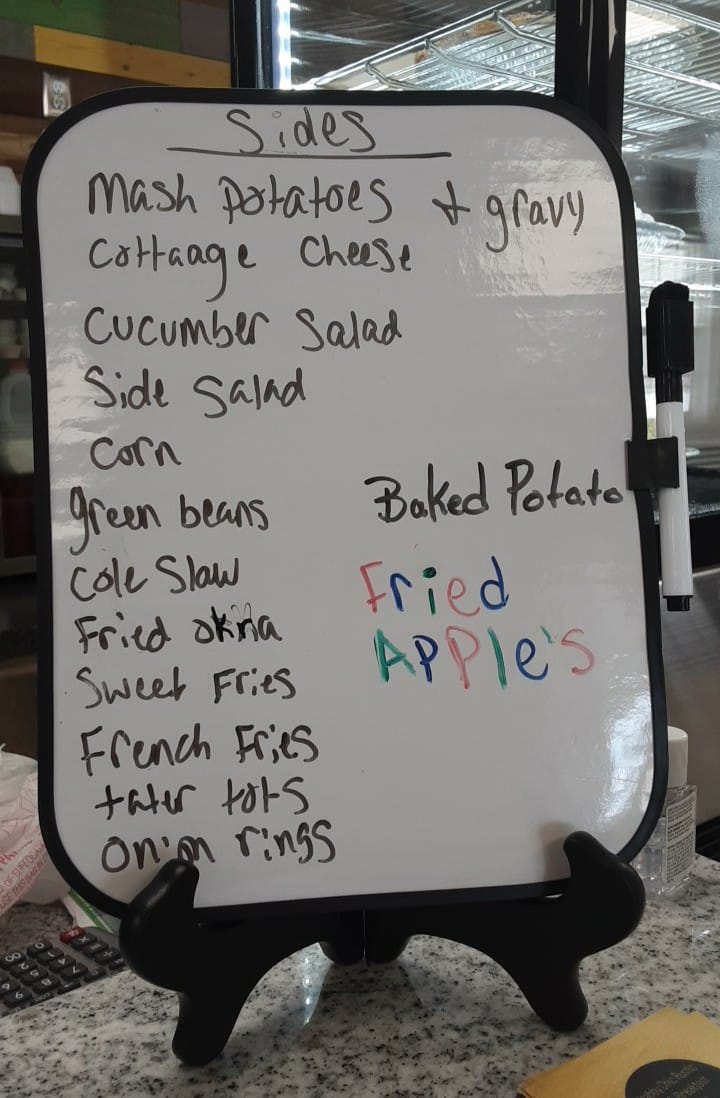 Sides
Mash Potatoes + gravy
Cottaage Cheese
Cucumber Salad
Side Salad
Corn
green beans
Cole Slaw
Fried okra
Sweet Fries
French Fries
tater tots
onion rings
Baked Potato
Fried
APPle's